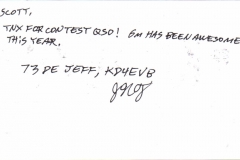 SCOTT,
TNX FOR CONTEST QSO! 6M HAS BEEN AWESOME
THIS YEAR.
73 DE JEFF, KD4EVB